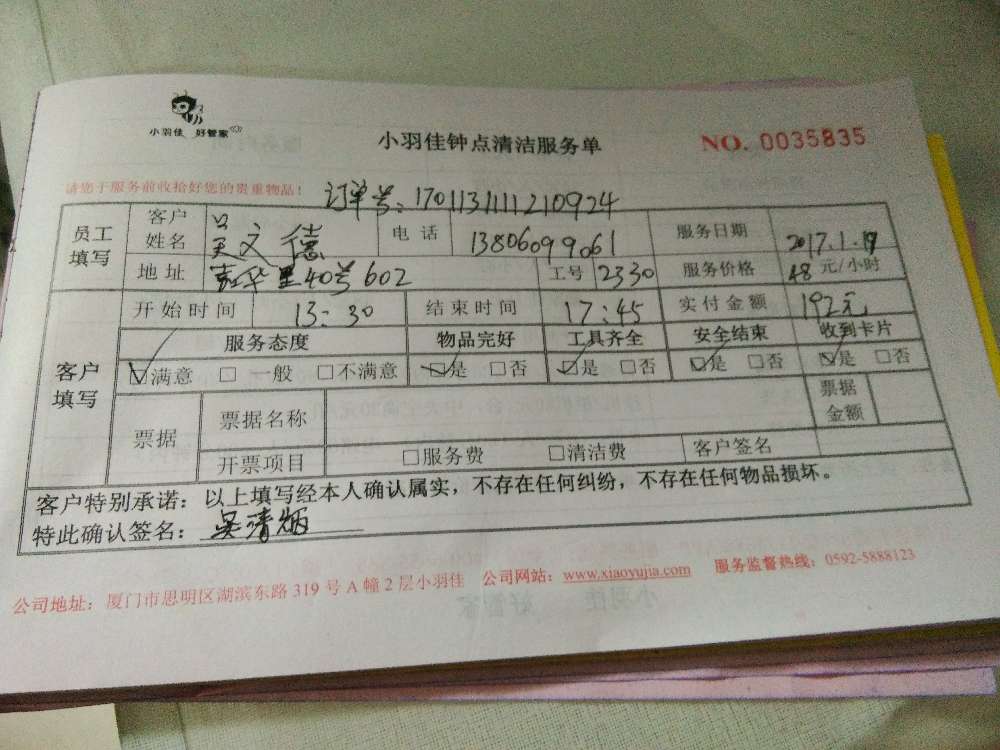 小羽佳 好管家
小羽佳钟点清洁服务单
NO. 0035835
请您于服务前收拾好您的贵重物品!
订单号:1701131111210924
员工填写 客户姓名 吴文德 电话 13806099061 服务日期 2017.1.19
地址 嘉华里40号602 工号 2330 服务价格 48 元/小时
客户填写 开始时间 13:30 结束时间 17:45 实付金额 192元
服务态度 物品完好 工具齐全 安全结束 收到卡片
☑满意 □一般 □不满意 ☑是 □否 ☑是 □否 ☑是 □否 ☑是 □否
票据 票据名称 票据金额
开票项目 □服务费 □清洁费 客户签名
客户特别承诺:以上填写经本人确认属实,不存在任何纠纷,不存在任何物品损坏。
特此确认签名:吴清炳
公司地址:厦门市思明区湖滨东路 319 号 A 幢 2 层小羽佳 公司网站:www.xiaoyujia.com 服务监督热线:0592-5888123